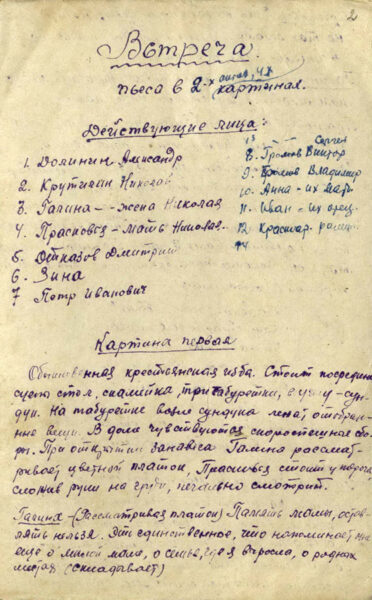 2
Встреча.
пьеса в 2-х актах, 4х
картинах.
Действующие лица:
1. Долинин Александр
2. Крутилин Николай
3. Галина - жена Николая
4. Прасковья - мать Николая.
5. Дмитрий
6. Зина
7 Петр Иванович
13 - - Сергей
8. Громов Виктор
9. Громов Владимир
10. Анна - их мать
11. Иван - их отец.
12. Красноар.
14
Картина первая
Обыкновенная крестьянская изба. Стоит посредине
сцены стол, скамейка, три табуретки, в углу - сун-
дук. На табуретке возле сундука лежат отобран-
ные вещи. В доме чувствуются скороспешные сбо-
ры. При открытии занавеса Галина рассмат-
ривает цветной платок, Прасковья стоит у порога
сложив руки на груди, печально смотрит.
Галина - (Рассматривая платок) Память мамы, остав-
лять нельзя. Это единственное, что напоминает мне
ещё о милой маме, о семье, где я выросла, о родных
местах (складывает)